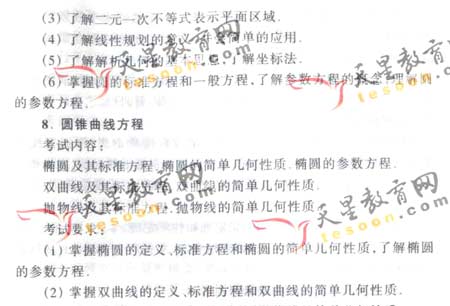 (3) 了解二元一次不等式表示平面区域.
(4) 了解线性规划的意义,并会简单的应用.
(5) 了解解析几何的基本思想,了解坐标法.
(6) 掌握圆的标准方程和一般方程,了解参数方程的概念,理解圆
的参数方程.
8. 圆锥曲线方程
考试内容:
椭圆及其标准方程.椭圆的简单几何性质.椭圆的参数方程.
双曲线及其标准方程.双曲线的简单几何性质.
抛物线及其标准方程.抛物线的简单几何性质.
考试要求:
(1) 掌握椭圆的定义、标准方程和椭圆的简单几何性质,了解椭圆
的参数方程.
(2) 掌握双曲线的定义、标准方程和双曲线的简单几何性质.
天星教育网
tesoon.com
天星教育网
tesoon.com
天星教育网
tesoon.com
天星教育网
tesoon.com